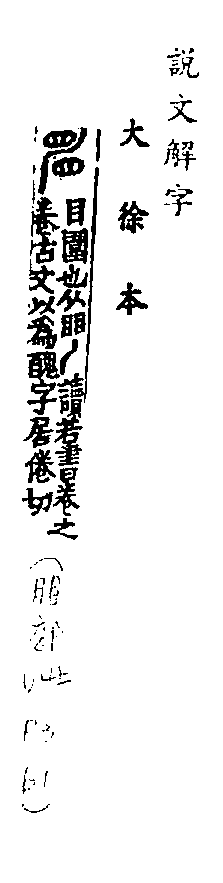 説文解字
大徐本
目圍也从䀠丿讀若書卷之
卷古文以為醜字居倦切